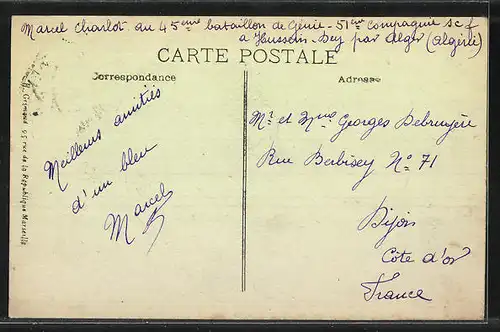 Marcel Charlot au 45ème bataillon de Génie - 51ème Compagnie sc f
a Hussein-Dey par Alger (Algérie)
CARTE POSTALE
Correspondance
Adresse
Meilleurs amitiés
d'un bleu
Marcel
Mr et Mme Georges Debruyère
Rue Berbisey No 71
Dijon
Côte d'or
France
Grimaud 25 rue de la République Marseille